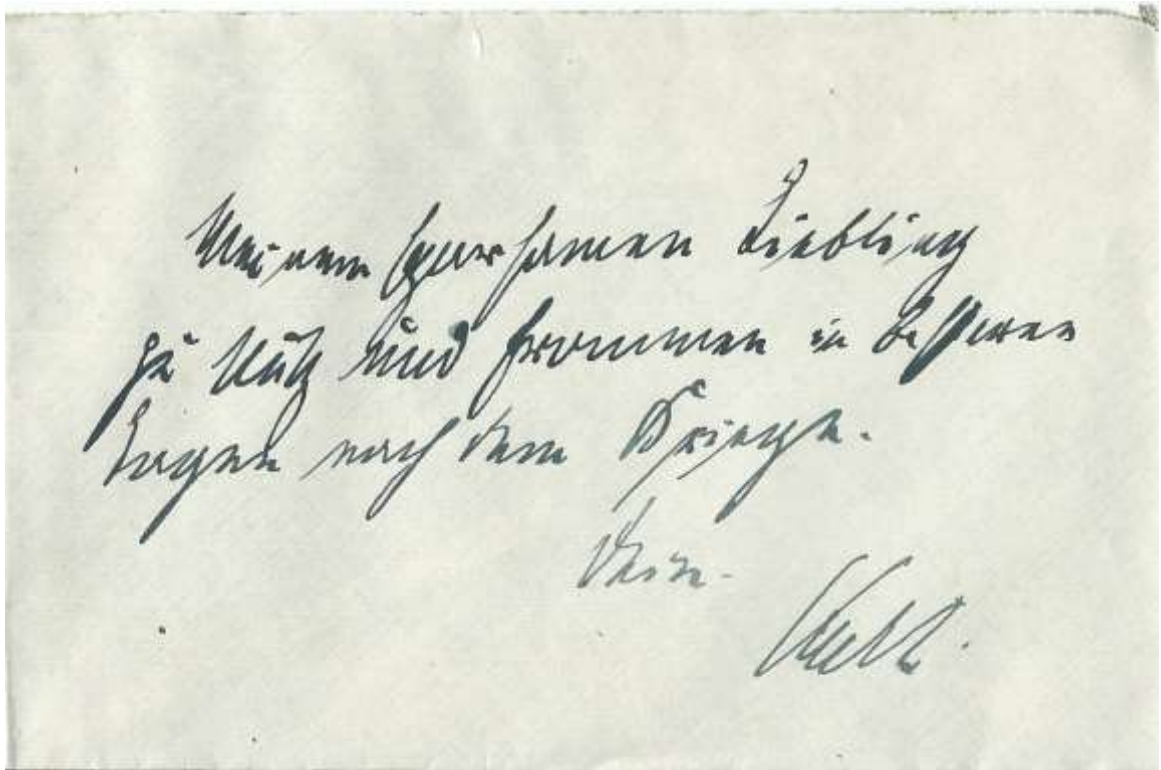 Meinem sparsamen Liebling
zu Nutz und Frommen in besseren
Tagen nach dem Kriege.
Dein